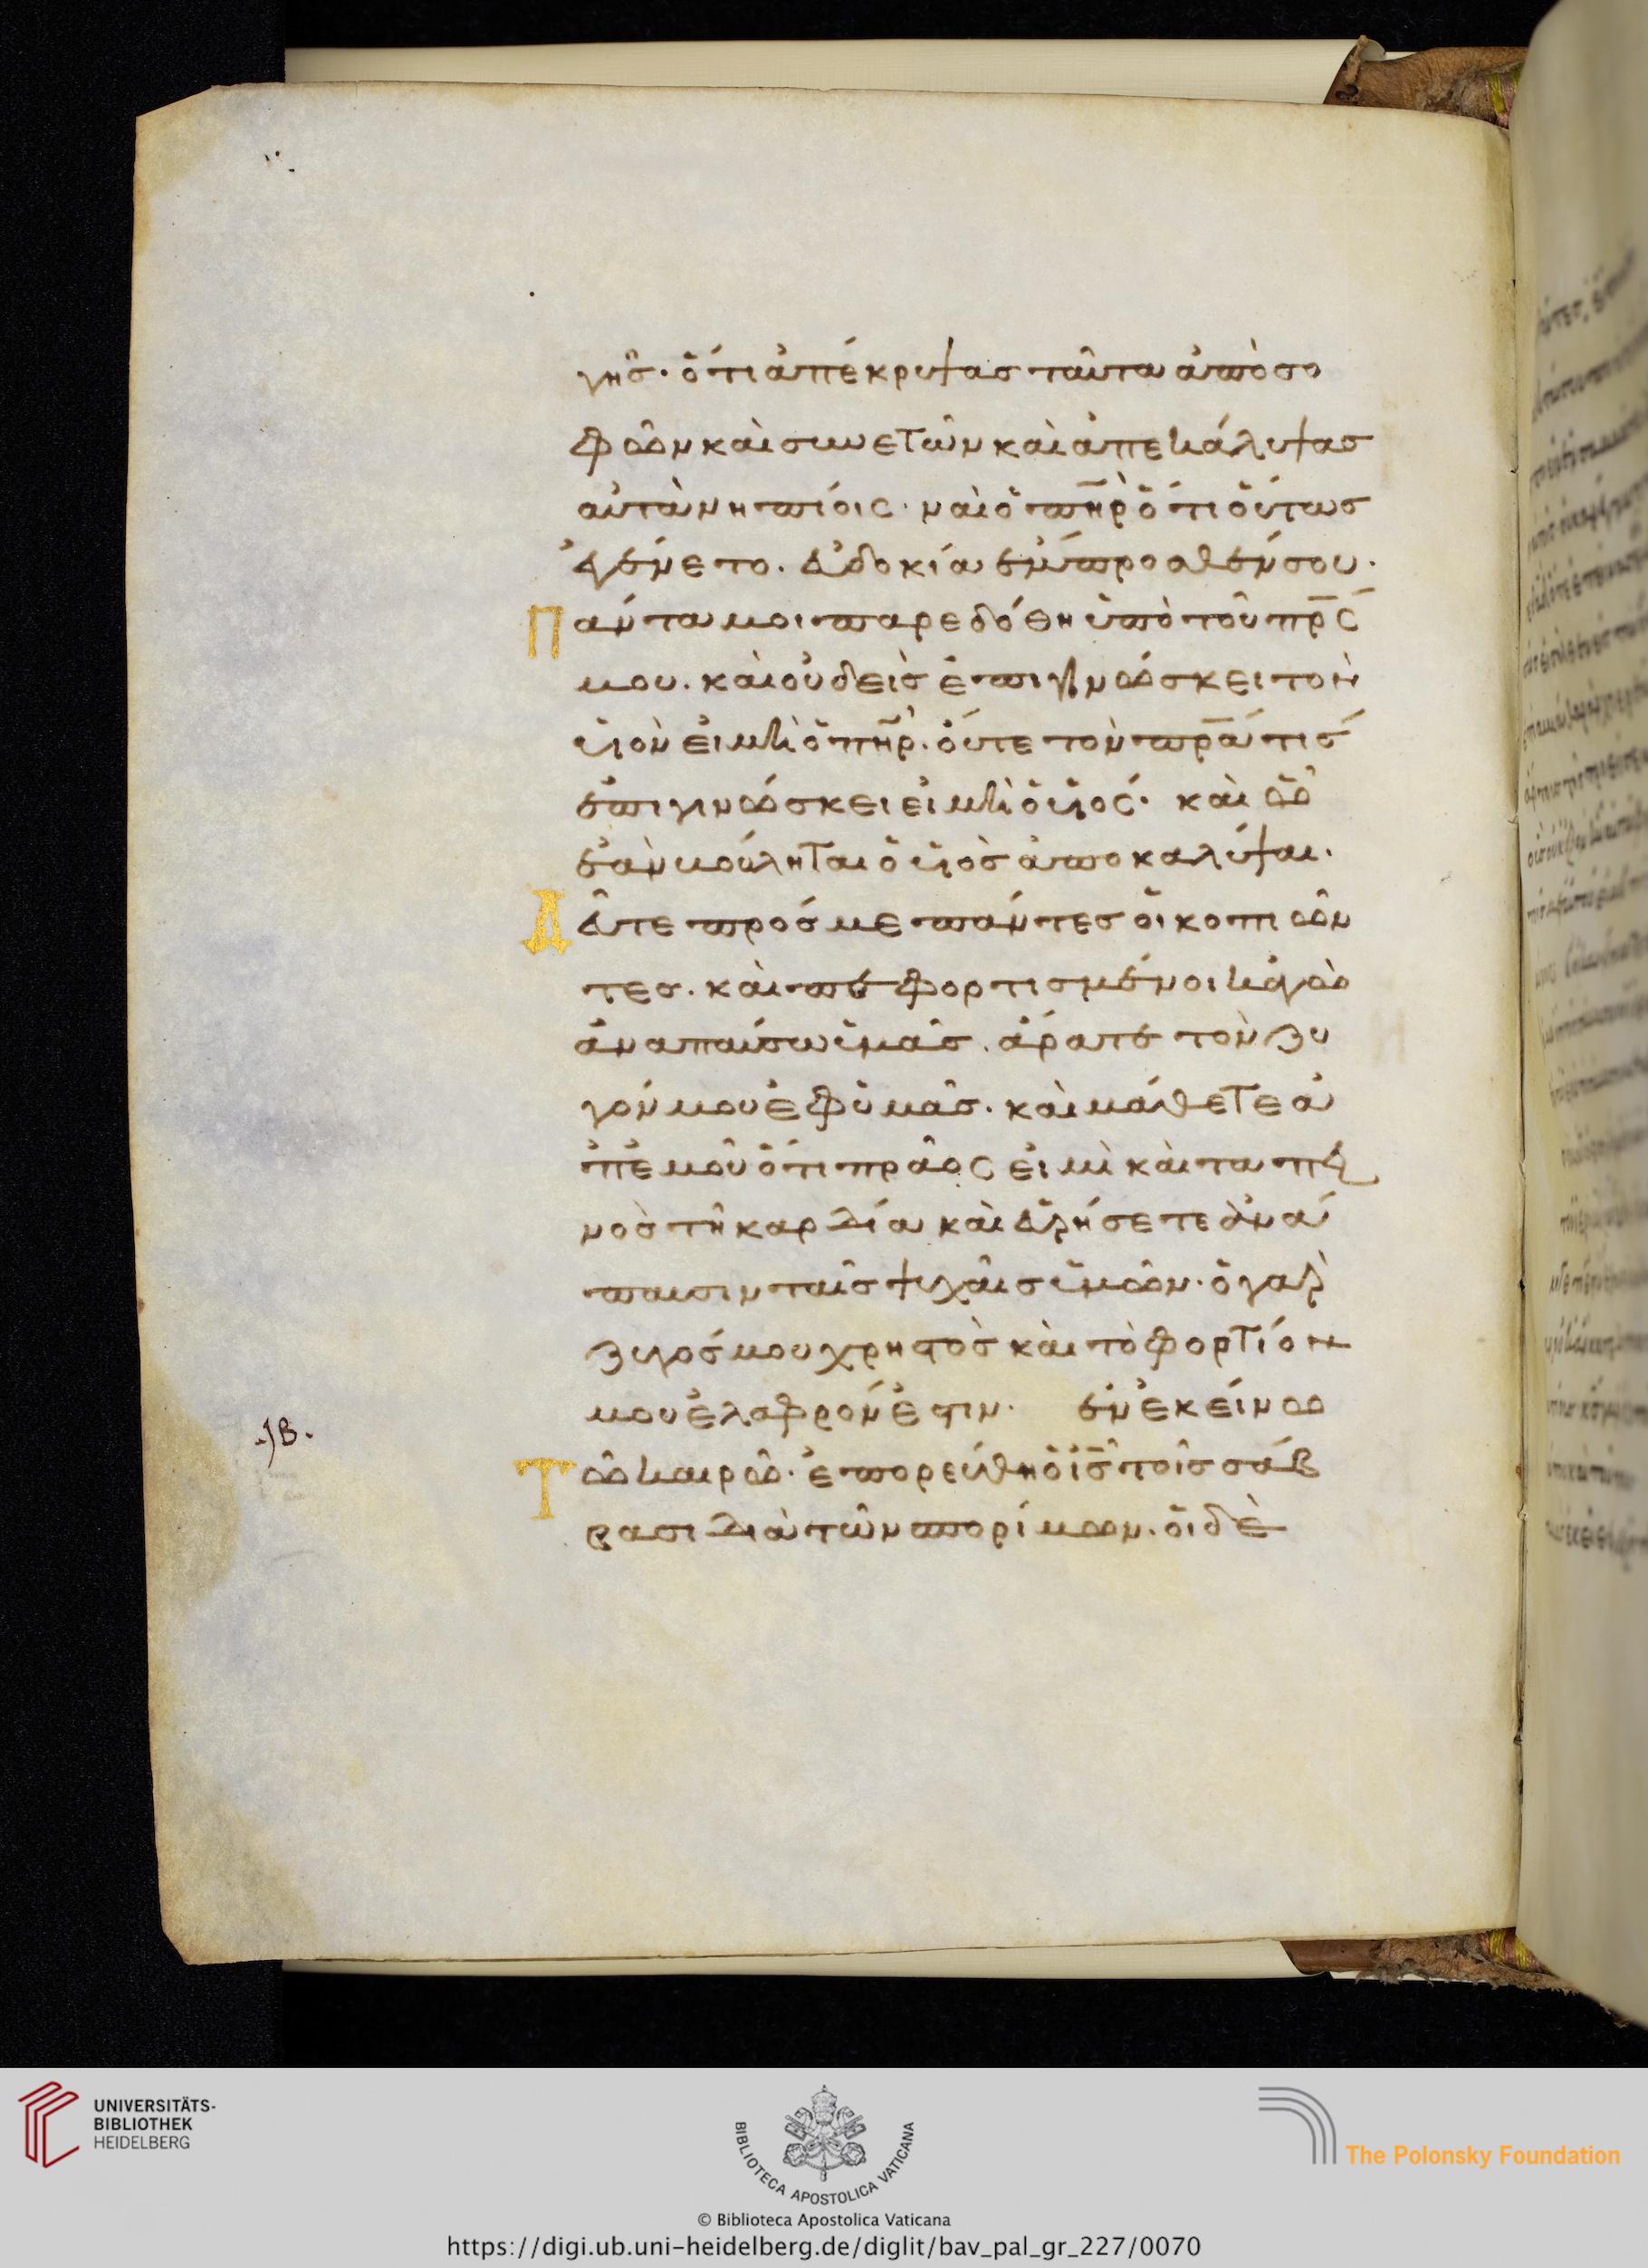 γῆς· ὅτι ἀπέκρυψας ταῦτα ἀπὸ σο
φῶν καὶ συνετῶν καὶ ἀπεκάλυψας
αὐτὰ νηπίοις· ναὶ ὁ π̅η̅ρ̅ ὅτι οὕτως
ἐγένετο. εὐδοκία ἔμπροσθέν σου.
Πάντα μοι παρεδόθη ὑπὸ τοῦ π̅ρ̅ς̅
μου. καὶ οὐδεὶς ἐπιγινώσκει τὸν
υἱὸν εἰ μὴ ὁ π̅η̅ρ̅. οὔτε τὸν π̅ρ̅α̅ τίς
ἐπιγινώσκει εἰ μὴ ὁ υἱός· καὶ ᾧ
ἐὰν βούληται ὁ υἱὸς ἀποκαλύψαι.
Δεῦτε πρός με πάντες οἱ κοπιῶν
τες. καὶ πεφορτισμένοι κἀγὼ
ἀναπαύσω ὑμᾶς. ἄρατε τὸν ζυ
γόν μου ἐφ ὑμᾶς. καὶ μάθετε ἀ
π ἐμοῦ ὅτι πρᾶος εἰμὶ καὶ ταπει
νὸς τῇ καρδία καὶ εὑρήσετε ἀνά
παυσιν ταῖς ψυχαῖς ὑμῶν· ὁ γὰρ
ζυγός μου χρηστὸς καὶ τὸ φορτίον
μου ἐλαφρόν ἐστιν. ἐν ἐκείνω
.ιβ.
Τῶ καιρῶ· ἐπορεύθη ὁ ι̅ς̅ τοῖς σάβ
βασι διὰ τῶν σπορίμων. οἱ δὲ
UNIVERSITÄTS-
BIBLIOTHEK
HEIDELBERG
BIBLIOTECA APOSTOLICA VATICANA
The Polonsky Foundation
© Biblioteca Apostolica Vaticana
https://digi.ub.uni-heidelberg.de/diglit/bav_pal_gr_227/0070